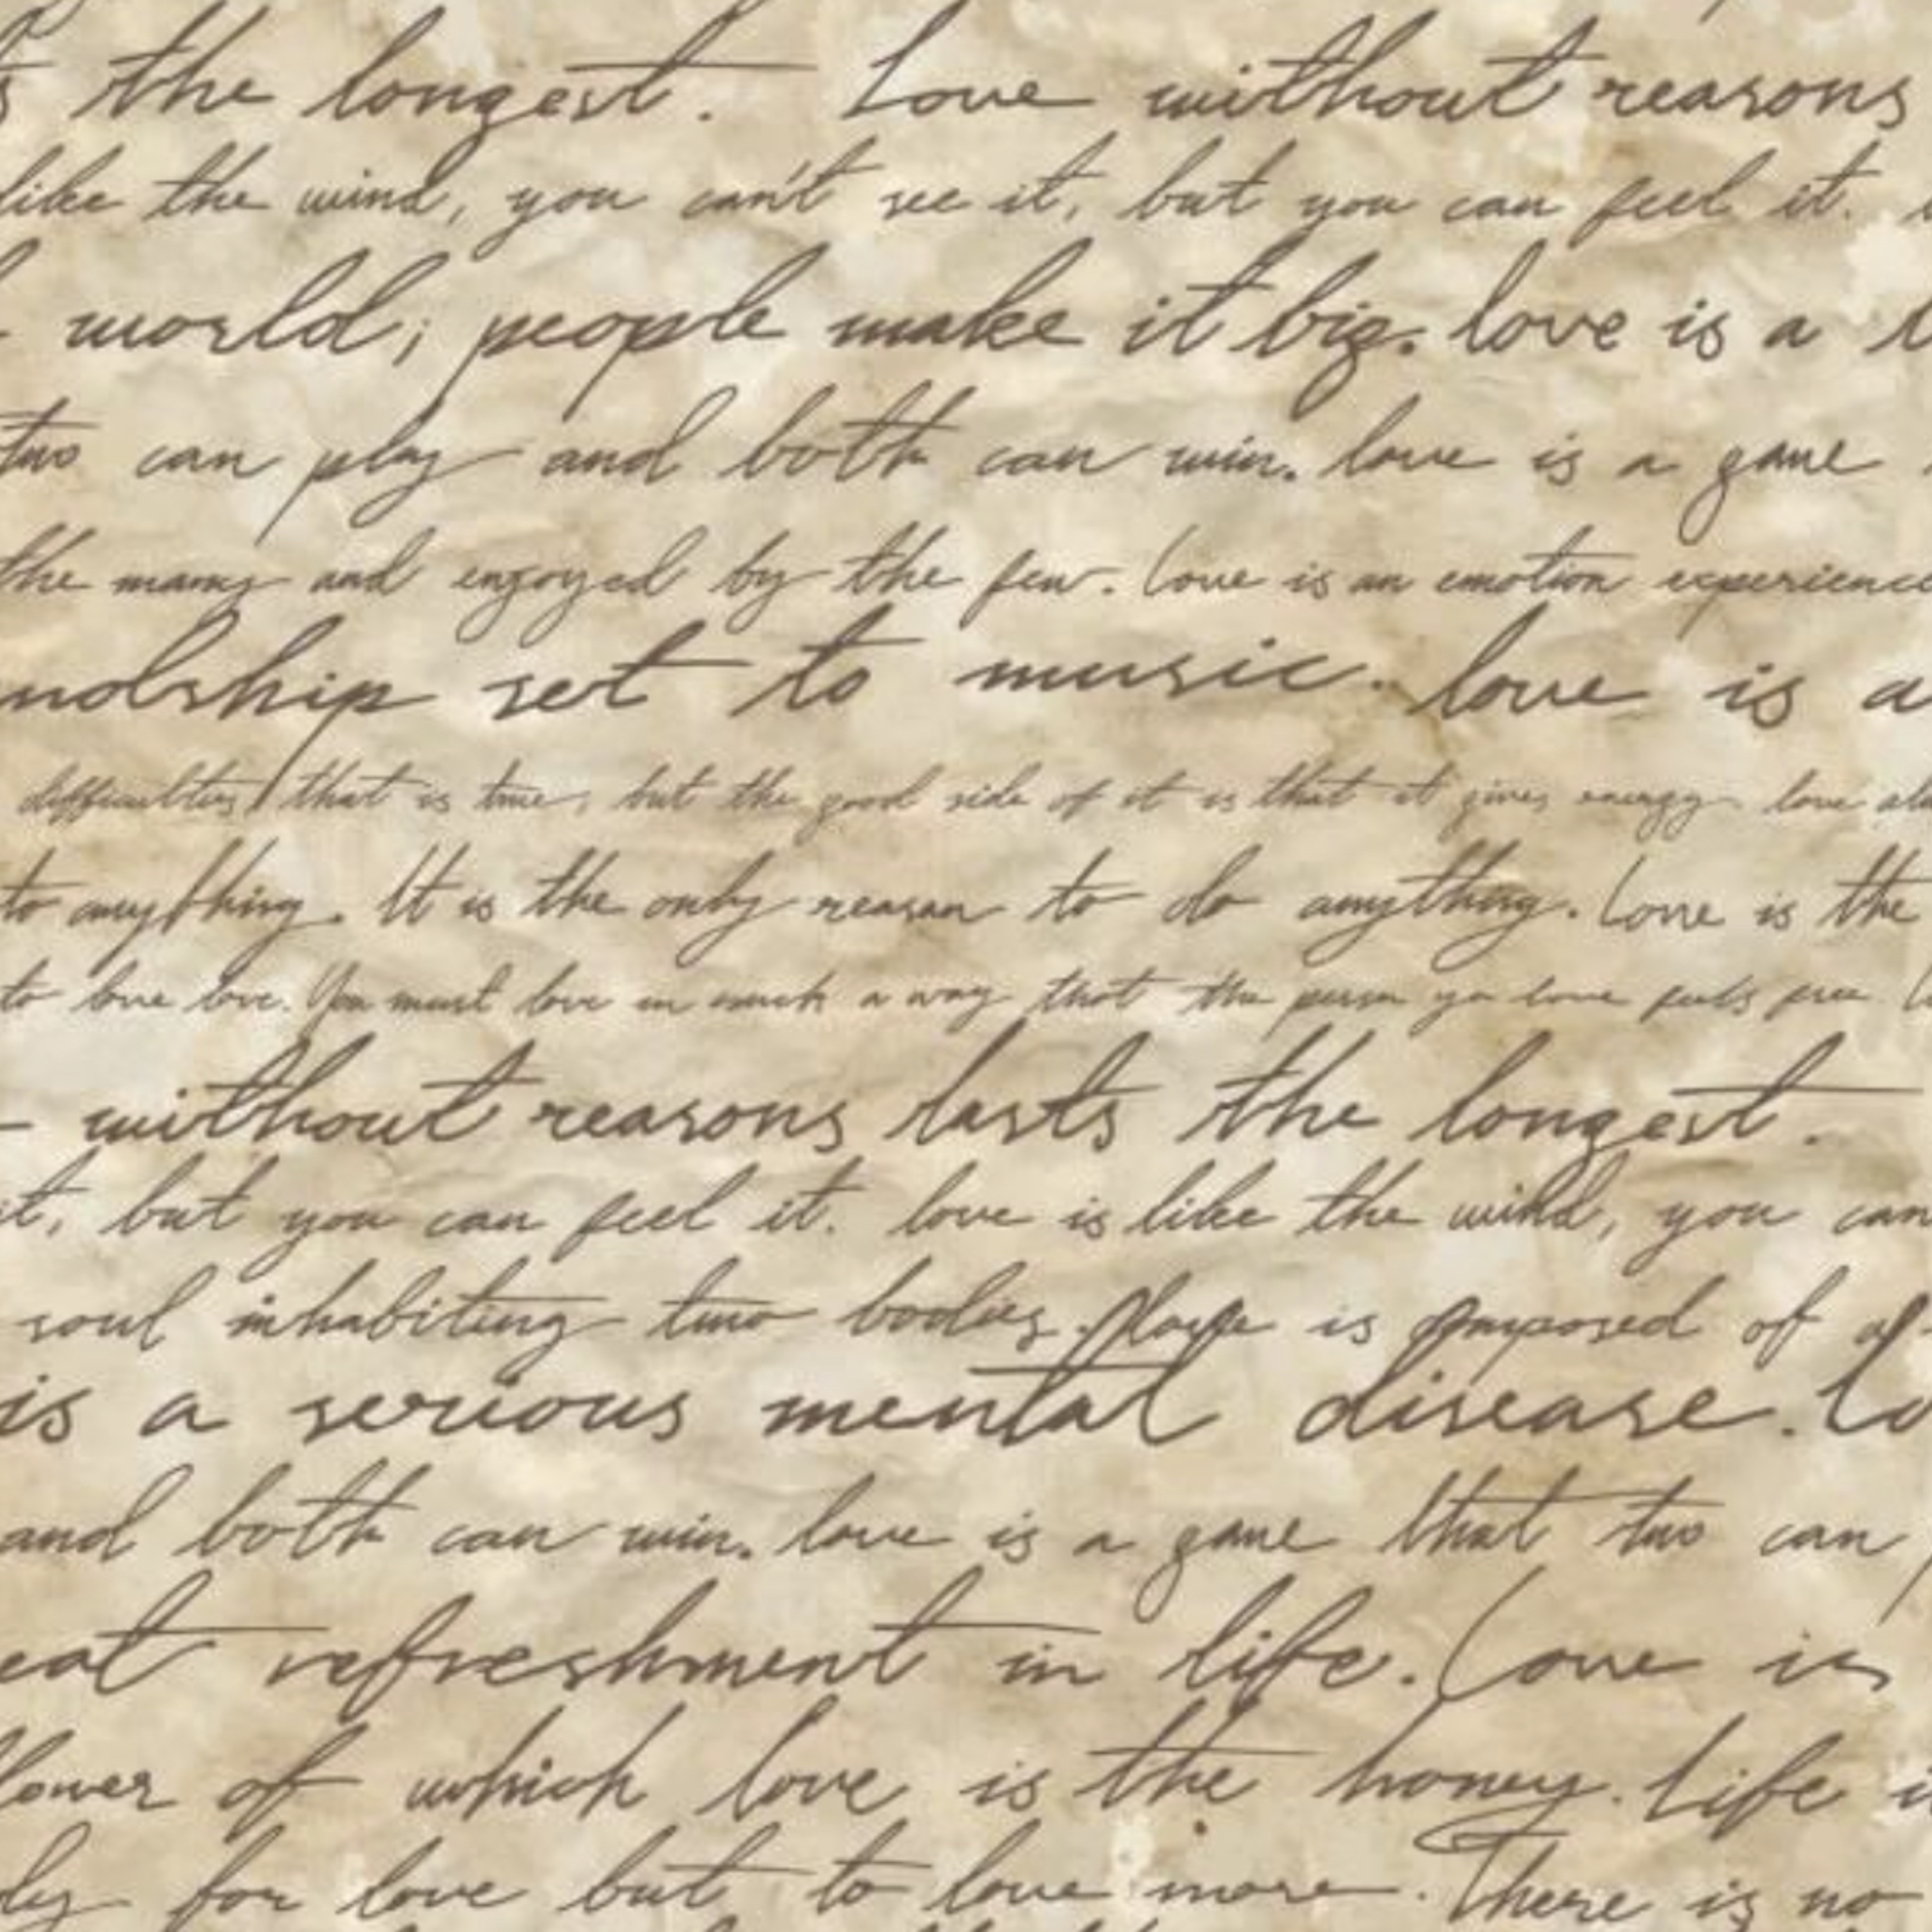 the longest. Love without reasons
like the wind, you can't see it, but you can feel it.
world; people make it big. love is a
two can play and both can win. love is a game
the many and enjoyed by the few. Love is an emotion experienced
ndship set to music. love is a
difficulties, that is true, but the good side of it is that it gives energy. love
to anything. It is the only reason to do anything. Love is the
to love love. You must love in such a way that the person yo love feels free.
without reasons lasts the longest.
it, but you can feel it. love is like the wind, you can
soul inhabiting two bodies. Love is composed of a
is a serious mental disease. Lo
and both can win. love is a game that two can
eat refreshment in life. Love is
flower of which love is the honey. Life i
for love but to love more. There is no